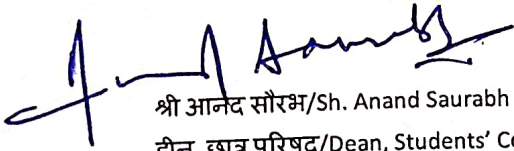 श्री आनंद सौरभ/Sh. Anand Saurabh
डीन, छात्र परिषद/Dean, Students'